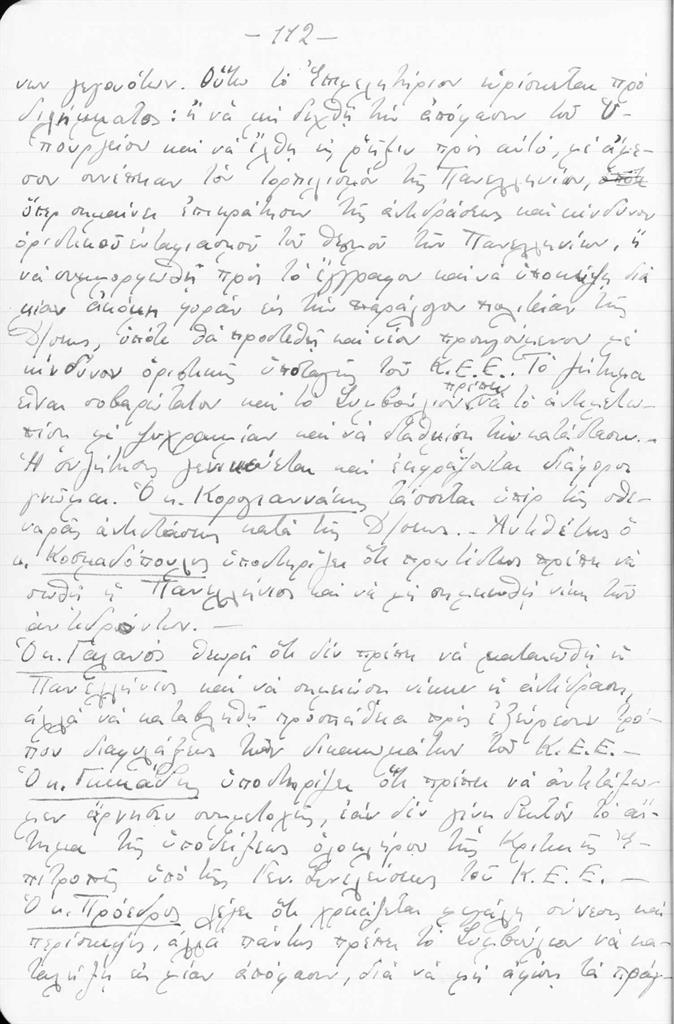 — 112 —
νων γεγονότων. Οὕτω τὸ Ἐπιμελητήριον εὑρίσκεται πρὸ
διλήμματος: ἢ νὰ μὴ δεχθῇ τὴν ἀπόφασιν τοῦ Ὑ-
πουργείου καὶ νὰ ἔλθῃ εἰς ρῆξιν πρὸς αὐτό, μὲ ἄμε-
σον συνέπειαν τὸν τορπιλισμὸν τῆς Πανελληνίου, ὁπότε
ὅπερ σημαίνει ἐπικράτησιν τῆς ἀντιδράσεως καὶ κίνδυνον
ὁριστικοῦ ἐνταφιασμοῦ τοῦ θεσμοῦ τῶν Πανελληνίων, ἢ
νὰ συμμορφωθῇ πρὸς τὸ ἔγγραφον καὶ νὰ ὑποκύψῃ διὰ
μίαν ἀκόμη φορὰν εἰς τὴν παράλογον πολιτείαν τῆς
Δ/σεως, ὁπότε θὰ προστεθῇ καὶ νέον προηγούμενον μὲ
κίνδυνον ὁριστικῆς ὑποταγῆς τοῦ Κ.Ε.Ε. Τὸ ζήτημα
εἶναι σοβαρώτατον καὶ τὸ Συμβούλιον πρέπει νὰ τὸ ἀντιμετω-
πίσῃ μὲ ψυχραιμίαν καὶ νὰ σταθμίσῃ τὴν κατάστασιν.—
Ἡ συζήτησις γενικεύεται καὶ ἐκφράζονται διάφοροι
γνῶμαι. Ὁ κ. Κορογιαννάκης τάσσεται ὑπὲρ τῆς σθε-
ναρᾶς ἀντιστάσεως κατὰ τῆς Δ/σεως.— Ἀντιθέτως ὁ
κ. Κοσμαδόπουλος ὑποστηρίζει ὅτι πρωτίστως πρέπει νὰ
σωθῇ ἡ Πανελλήνιος καὶ νὰ μὴ σημειωθῇ νίκη τῶν
ἀντιδρώντων.—
Ὁ κ. Γαλανός θεωρεῖ ὅτι δὲν πρέπει νὰ ματαιωθῇ ἡ
Πανελλήνιος καὶ νὰ σημειώσῃ νίκην ἡ ἀντίδρασις,
ἀλλὰ νὰ καταβληθῇ προσπάθεια πρὸς ἐξεύρεσιν τρό-
που διαφυλάξεως τῶν δικαιωμάτων τοῦ Κ.Ε.Ε.—
Ὁ κ. ὑποστηρίζει ὅτι πρέπει νὰ ἀντιτάξω-
μεν ἄρνησιν συμμετοχῆς, ἐὰν δὲν γίνῃ δεκτὸν τὸ αἴ-
τημα τῆς ὑποδείξεως ὁλοκλήρου τῆς Κριτικῆς Ἐ-
πιτροπῆς ὑπὸ τῆς Γεν. Συνελεύσεως τοῦ Κ.Ε.Ε.—
Ὁ κ. Πρόεδρος λέγει ὅτι χρειάζεται μεγάλη σύνεσις καὶ
περίσκεψις, ἀλλὰ πάντως πρέπει τὸ Συμβούλιον νὰ κα-
ταλήξῃ εἰς μίαν ἀπόφασιν, διὰ νὰ μὴ ἀφήσῃ τὰ πράγ-